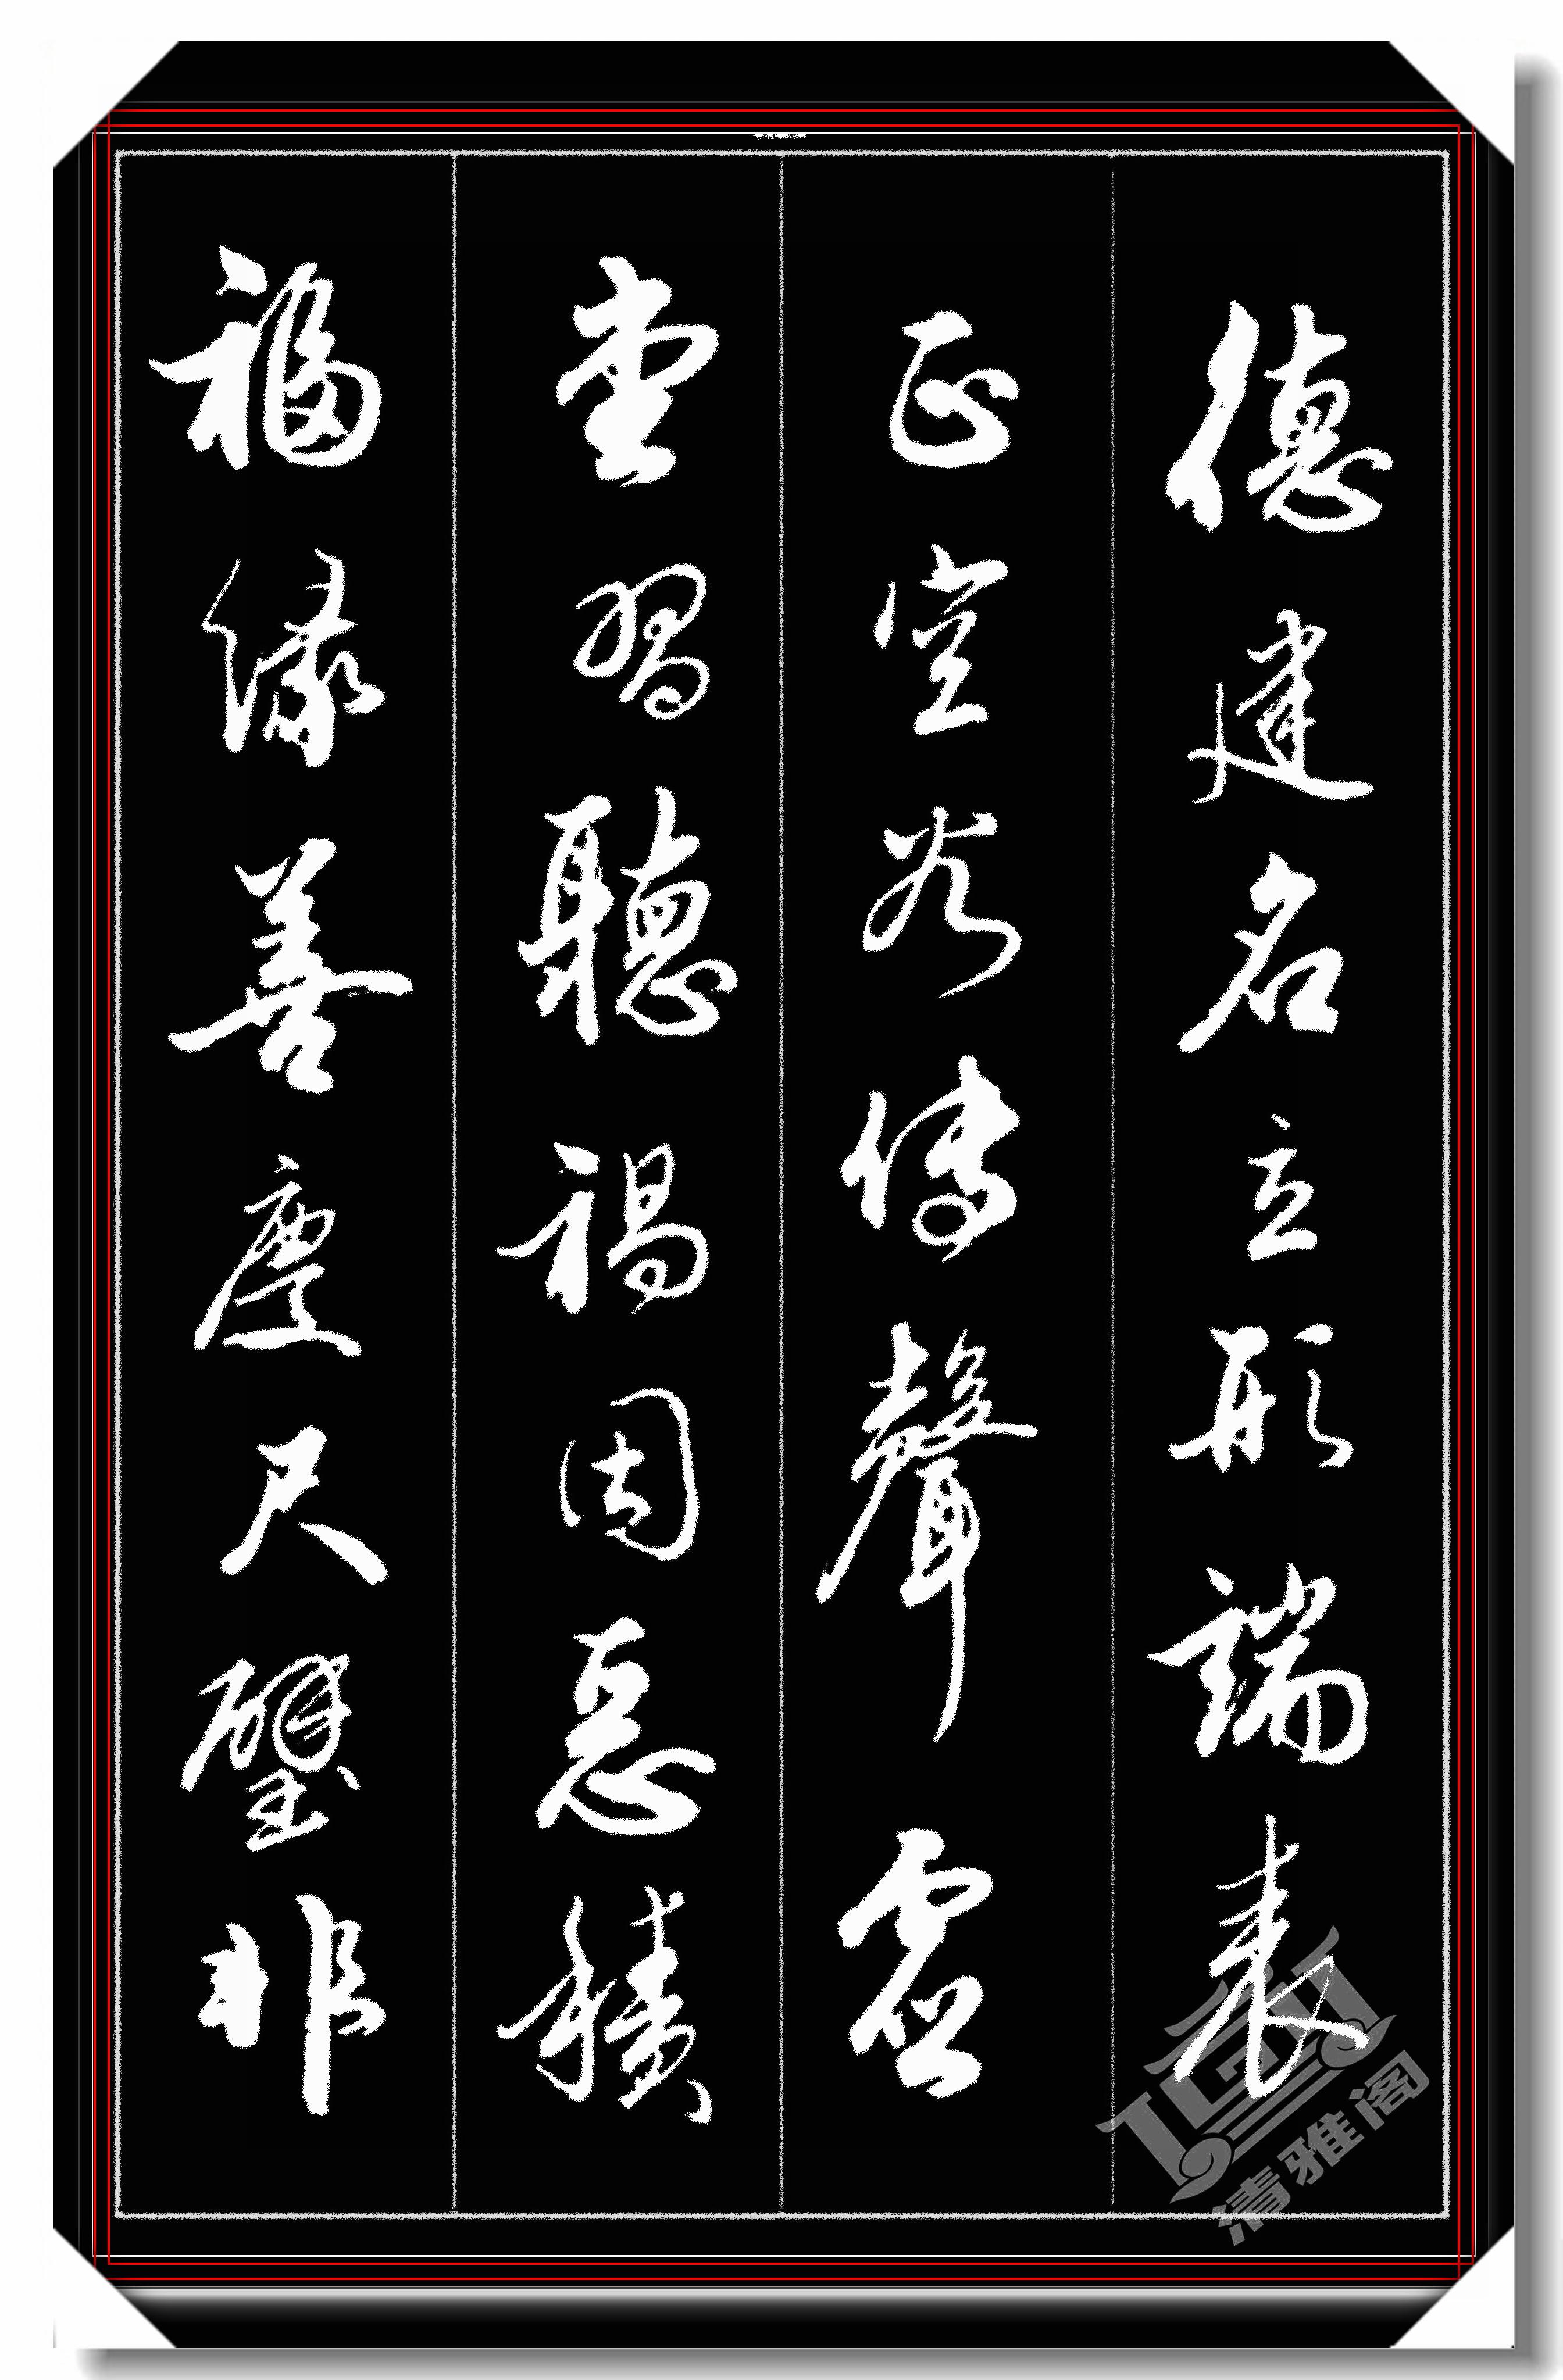 德建名立形端表
正空谷傳聲虛
堂習聽禍因惡積
福緣善慶尺璧非
清雅阁